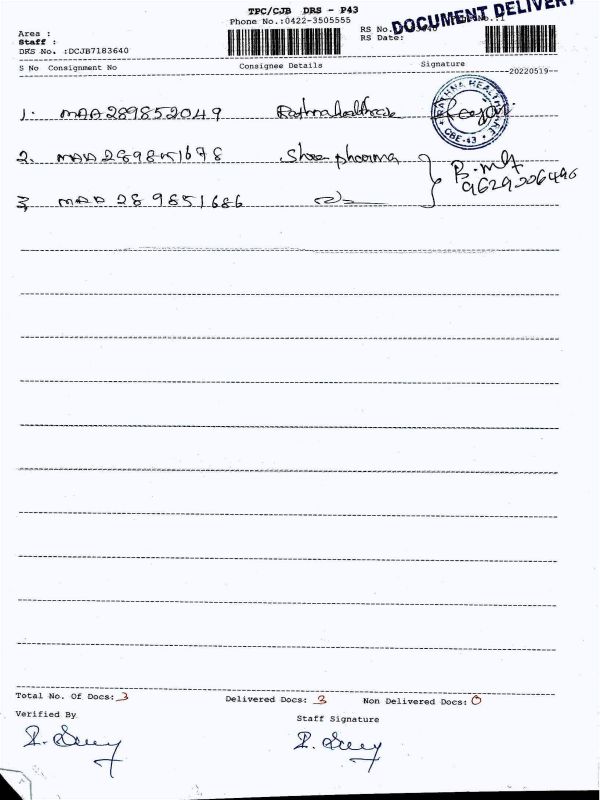 TPC/CJB DRS - P43
Phone No.:0422-3505555
DOCUMENT DELIVERY
Area :
Staff :
DRS No. :DCJB7183640
RS No.
RS Date:
S No Consignment No Consignee Details Signature
20220519
1. MAA289852049 Rathna healthcare
RATHNA HEALTH CARE
CBE-43
2. MAA289851678 Shree pharma
9629206496
3, MAA 289851686
Total No. Of Docs: 3 Delivered Docs: 3 Non Delivered Docs: 0
Verified By Staff Signature